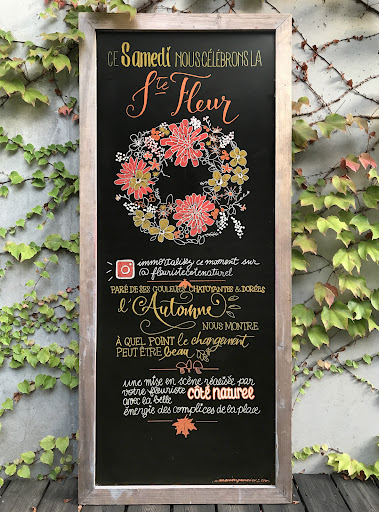 CE SAMEDI NOUS CÉLÉBRONS LA
Ste Fleur
immortalisez ce moment sur
@fleuristecotenaturel
PARÉ DE SES COULEURS CHATOYANTES & DORÉES
l'Automne
NOUS MONTRE
À QUEL POINT le changement
PEUT ÊTRE beau
une mise en scène réalisée par
votre fleuriste côté naturel
avec la belle
énergie des complices de la place